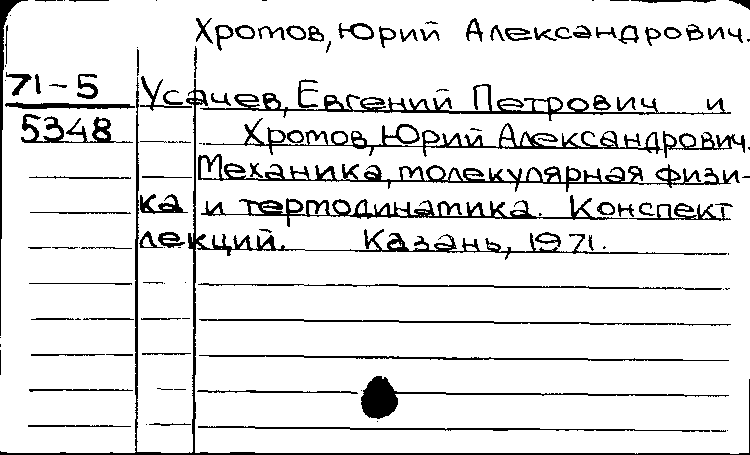 Хромов, Юрий Александрович.
71-5
5348
Усачев, Евгений Петрович и
Хромов, Юрий Александрович.
Механика, молекулярная физи-
ка и термодинамика. Конспект
лекций. Казань, 1971.